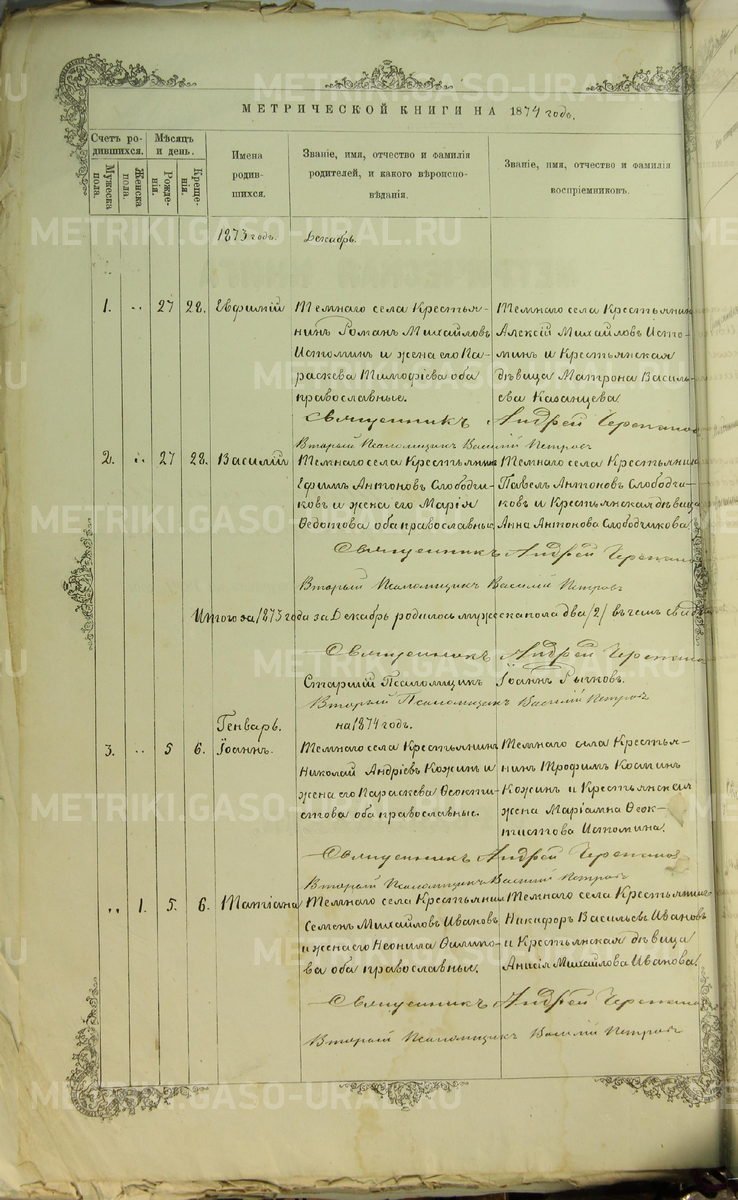 МЕТРИЧЕСКОЙ КНИГИ НА 1874 годъ.
Счетъ родившихся.
Мужеска пола.
Женска пола.
Мѣсяцъ и день.
Рожденія.
Крещенія.
Имена родившихся.
Званіе, имя, отчество и фамилія родителей, и какого вѣроисповѣданія.
Званіе, имя, отчество и фамилія воспріемниковъ.
1873 годъ. Декабрь.
1. „ 27 28. Евфимій
Темнаго села Крестья-
нинъ Романъ Михайловъ
Истоминъ и жена его Па-
раскева Тимофіева оба
православные.
Темнаго села Крестьянинъ
Алексій Михайловъ Исто-
минъ и Крестьянская
дѣвица Матрона Василь-
ева Казанцева
Священникъ Андрей Черепанов
Вторый Псаломщикъ Василій Петровъ
2. „ 27 28. Василій
Темнаго села Крестьянинъ
Ефимъ Антоновъ Слободчи-
ковъ и жена его Марія
Ѳедотова оба православные
Темнаго села Крестьянинъ
Павелъ Антоновъ Слободчи-
ковъ и Крестьянская дѣвица
Анна Антонова Слободчикова
Священникъ Андрей Черепано
Вторый Псаломщикъ Василій Петровъ
Итого за 1873 года за Декабрь родилось мужеска пола два /2/ въ чемъ
Священникъ Андрей Черепано
Старшій Псаломщикъ Іоаннъ Рычковъ.
Вторый Псаломщикъ Василій Петровъ
Генварь. на 1874 годъ.
3. „ 5 6. Іоаннъ.
Темнаго села Крестьянинъ
Николай Андріевъ Кожинъ и
жена его Параскева Ѳеокти-
стова оба православные.
Темнаго села Крестья-
нинъ Трофимъ Косминъ
Кожинъ и Крестьянская
жена Маріамна Ѳеок-
тистова Истомина.
Священникъ Андрей Черепанов
Вторый Псаломщикъ Василій Петровъ
„ 1. 5. 6. Татіана
Темнаго села Крестьянинъ
Семенъ Михайловъ Ивановъ
и жена его Неонила Филипо-
ва оба православные.
Темнаго села Крестьянинъ
Никифоръ Васильевъ Ивановъ
и Крестьянская дѣвица
Анисія Михайлова Иванова.
Священникъ Андрей Черепано
Вторый Псаломщикъ Василій Петровъ
METRIKI.GASO-URAL.RU